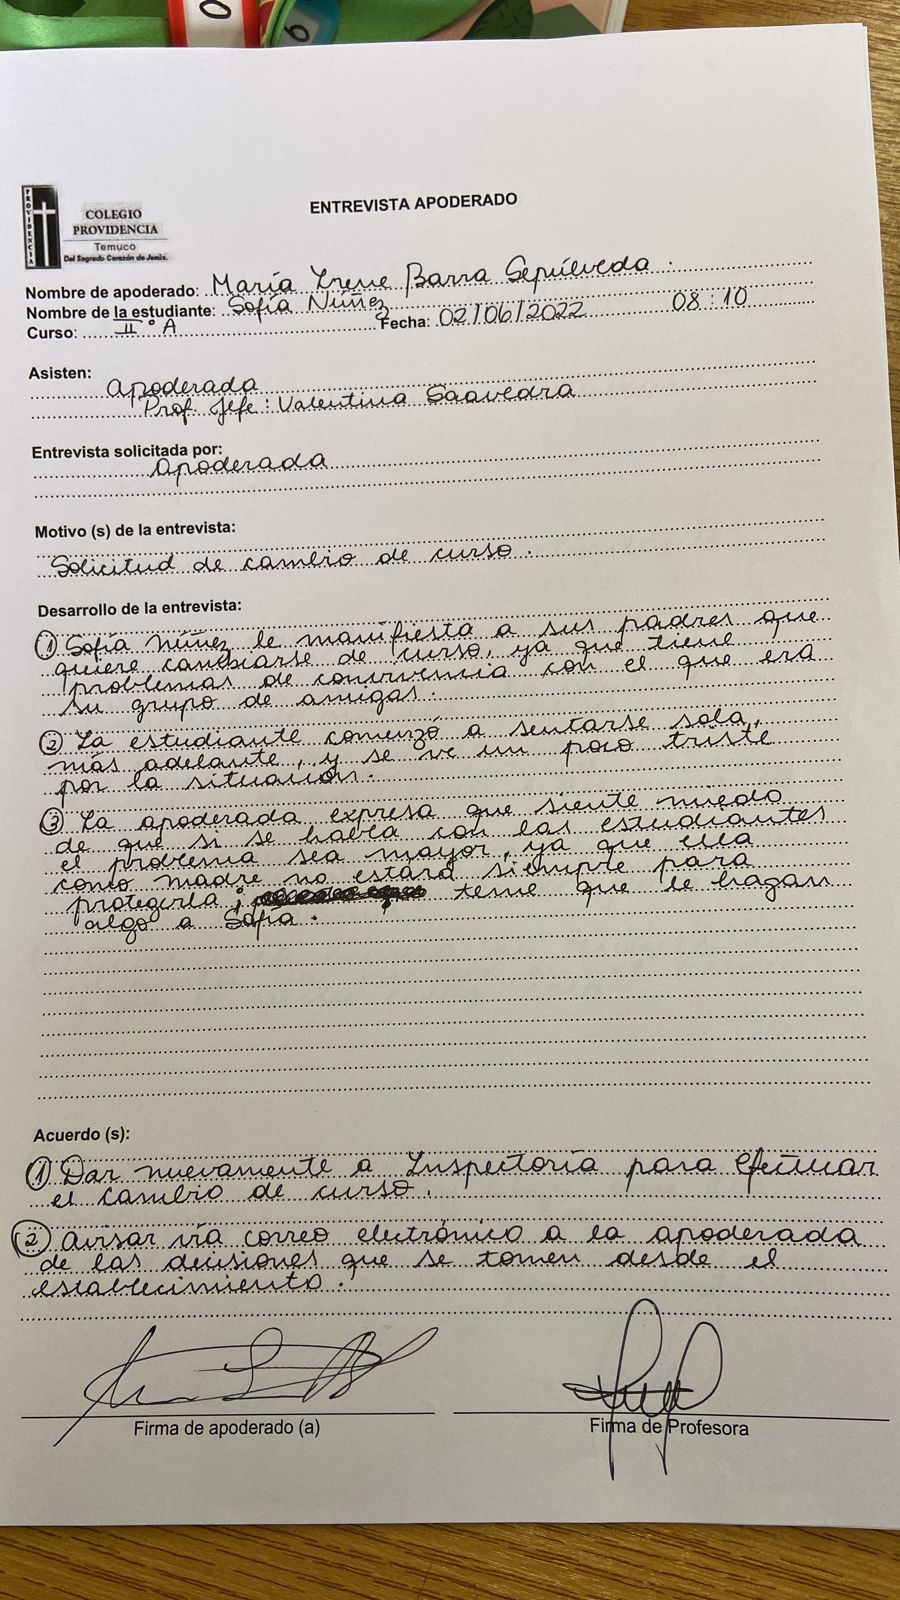 PROVIDENCIA
COLEGIO
PROVIDENCIA
Temuco
Del Sagrado Corazón de Jesús.
ENTREVISTA APODERADO
Nombre de apoderado: María Irene Barra Sepúlveda.
Nombre de la estudiante: Sofía Núñez
Curso: II°A Fecha: 02/06/2022 08:10
Asisten:
Apoderada
Prof. Jefe: Valentina Saavedra
Entrevista solicitada por:
Apoderada
Motivo (s) de la entrevista:
Solicitud de cambio de curso.
Desarrollo de la entrevista:
① Sofía Núñez le manifiesta a sus padres que
quiere cambiarse de curso, ya que tiene
problemas de convivencia con el que era
su grupo de amigas.
② La estudiante comenzó a sentarse sola,
más adelante, y se ve un poco triste
por la situación.
③ La apoderada expresa que siente miedo
de que si se habla con las estudiantes
el problema sea mayor, ya que ella
como madre no estará siempre para
protegerla; teme que le hagan
algo a Sofía.
Acuerdo (s):
① Dar nuevamente a Inspectoría para efectuar
el cambio de curso.
② Avisar vía correo electrónico a la apoderada
de las decisiones que se tomen desde el
establecimiento.
Firma de apoderado (a)
Firma de Profesora